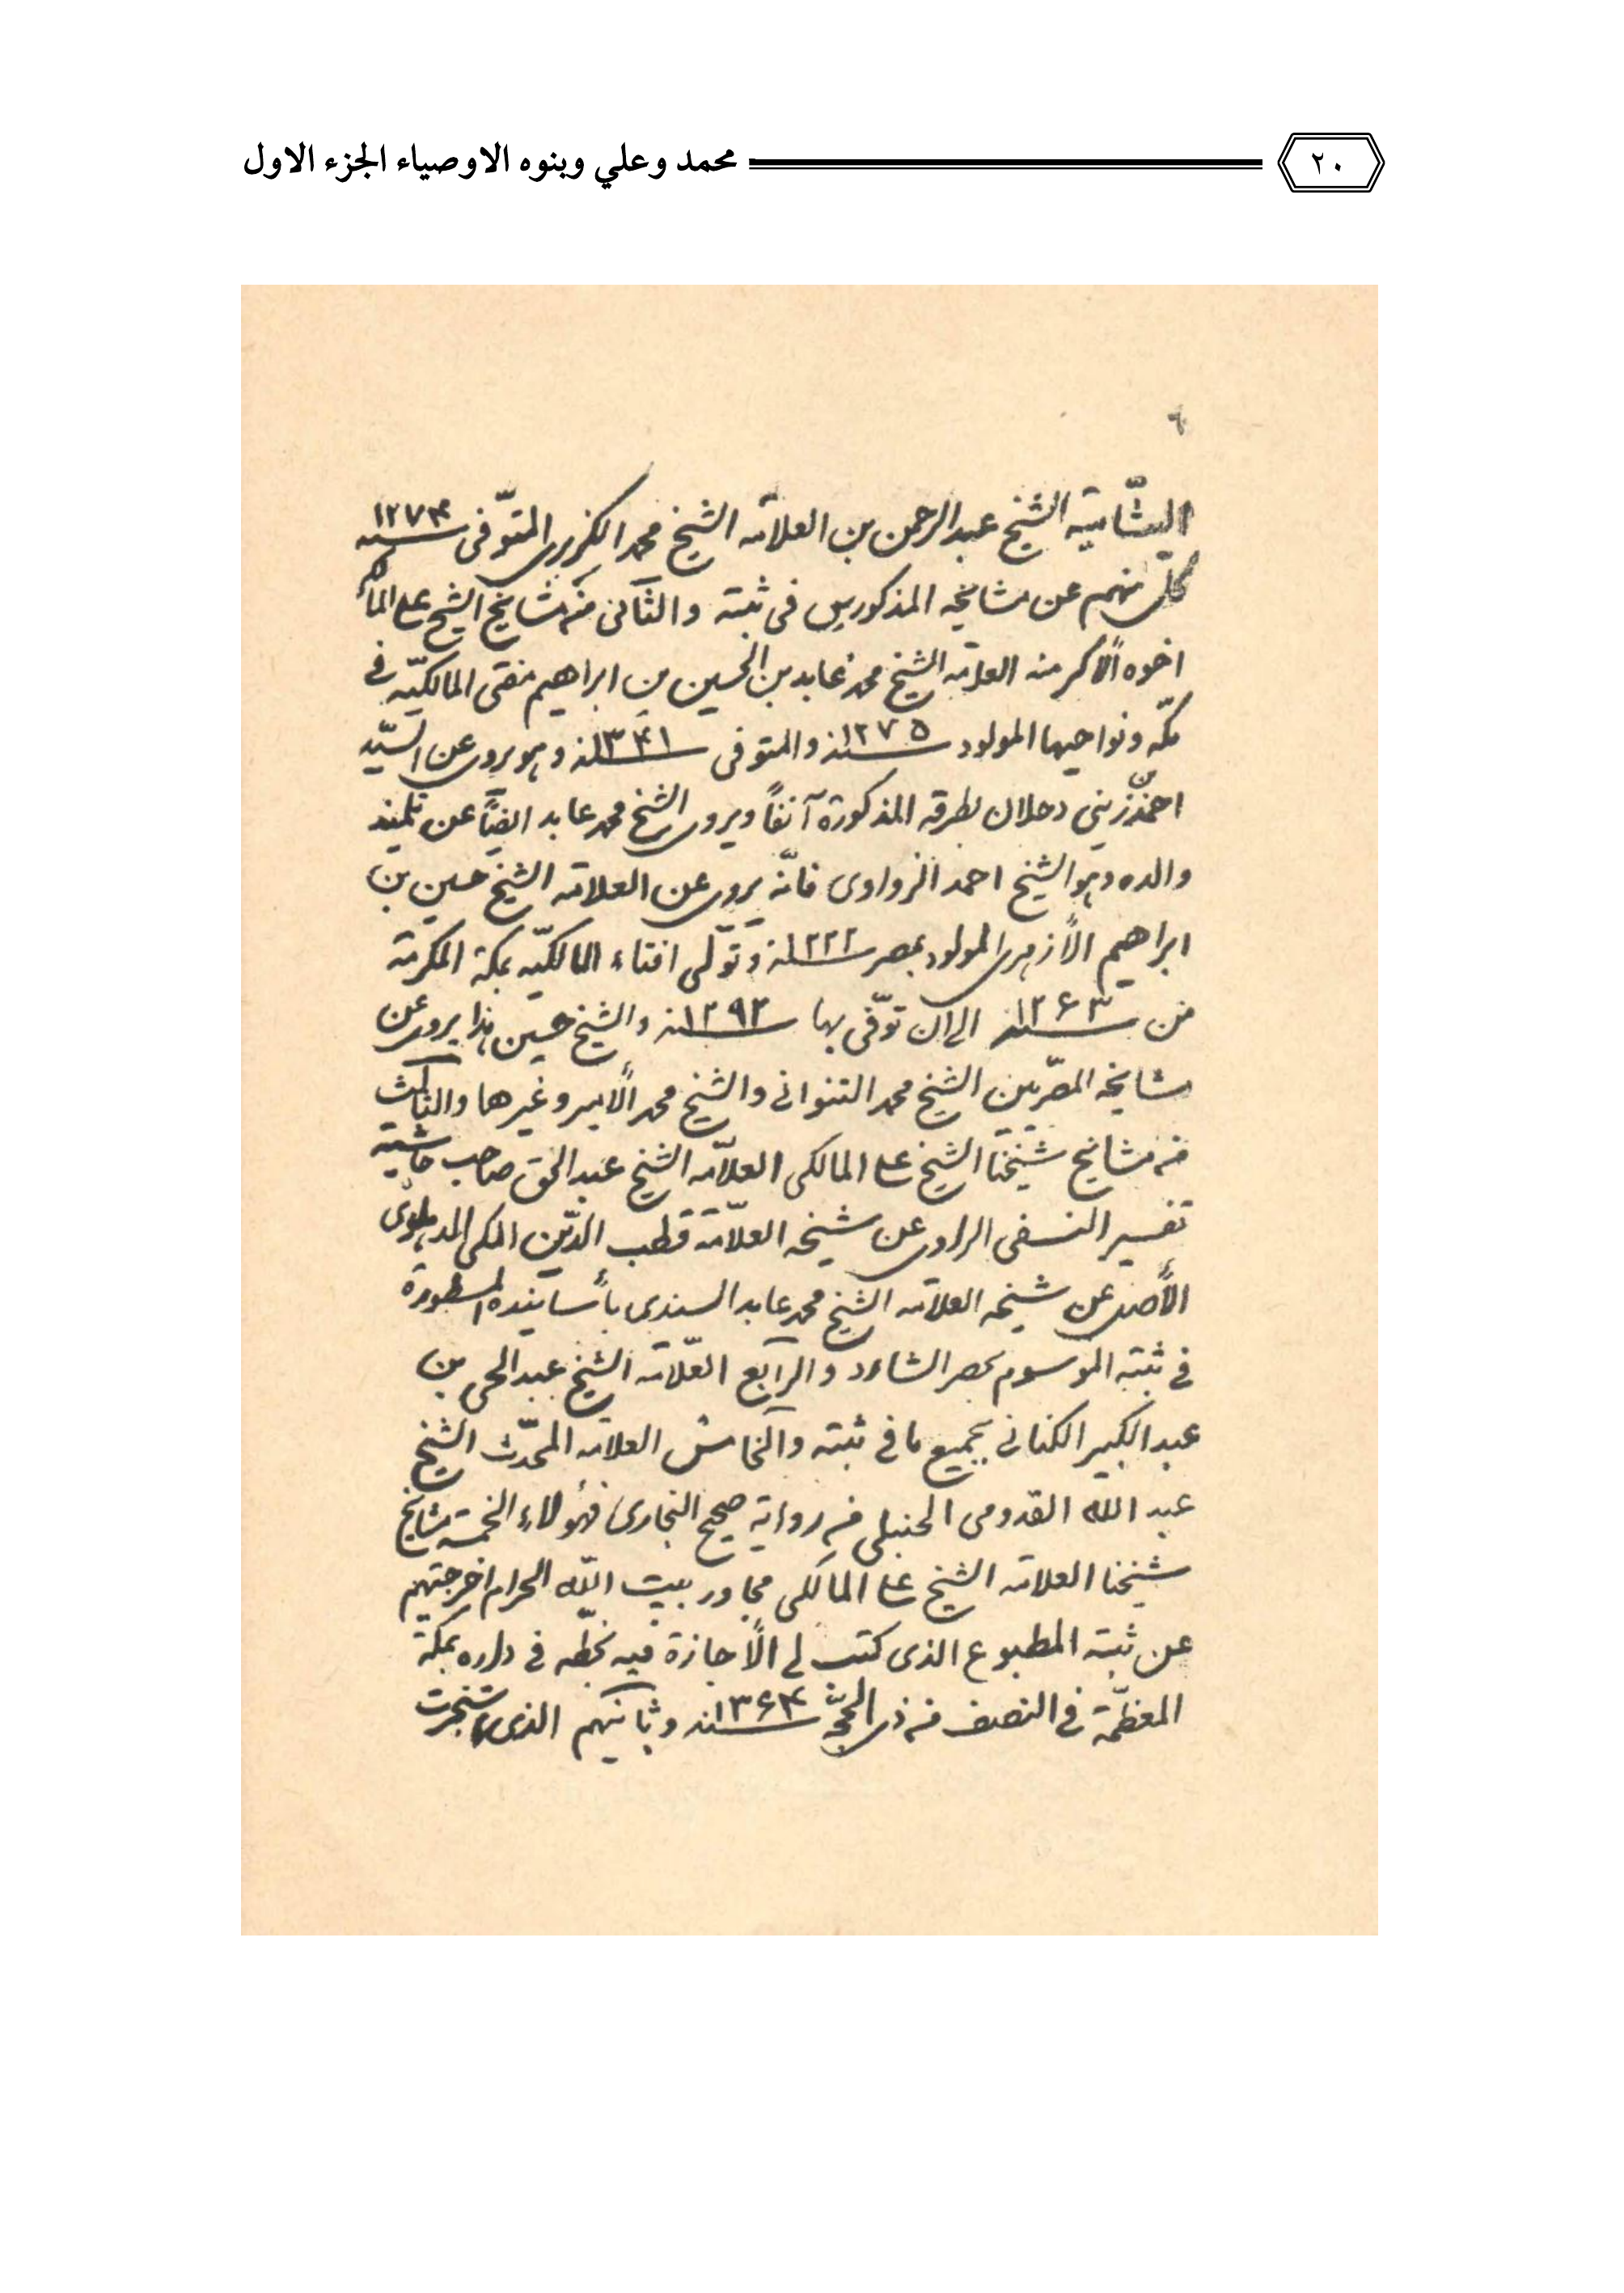 محمد وعلي وبنوه الاوصياء الجزء الاول ٢٠
٦
الشيخ عبد الرحمن بن العلامه الشيخ محمد الكزبرى المتوّفى سنه ١٢٧٤
كلّ منهم عن مشايخه المذكورين فى ثبته والثانى من مشايخ الشيخ على
اخوه الأكبر منه العلامه الشيخ محمد عابد بن الحسين بن ابراهيم مفتى المالكيّه فى
مكّه ونواحيها المولود سنه ١٢٧٥ والمتوفى سنه ١٣٤١ وهو يروى عن السيّد
احمد زينى دحلان بطرقه المذكورة آنفاً ويروى الشيخ محمد عابد ايضاً عن تلميذ
والده وهو الشيخ احمد الزواوى فانّه يروى عن العلامه الشيخ حسين بن
ابراهيم الأزهرى المولود بمصر سنه ١٢٢٢ وتولّى افتاء المالكيّه بمكة المكرمة
من سنه ١٢٦٣ الى ان توّفى بها سنه ١٢٩٢ والشيخ حسين هذا يروى عن
مشايخه المصريين الشيخ محمد الشنوانى والشيخ محمد الأمير وغيرهما والثالث
من مشايخ شيخنا الشيخ على المالكى العلاّمه الشيخ عبد الحق صاحب حاشية
تفسير النسفى الراوى عن شيخه العلاّمة قطب الدّين المكى الدهلوى
الأصل عن شيخه العلامه الشيخ محمد عابد السندى بأسانيده المسطورة
فى ثبته الموسوم بحصر الشارد والرابع العلّامه الشيخ عبد الحى بن
عبد الكبير الكتانى بجميع ما فى ثبته والخامس العلامه المحدّث الشيخ
عبد الله القدومى الحنبلى من رواية صحيح البخارى فهؤلاء الخمسة مشايخ
شيخنا العلامه الشيخ على المالكى مجاور بيت اللّه الحرام اخرجتهم
عن ثبته المطبوع الذى كتب لى الأجازة فيه بخطّه فى داره بمكة
المعظمّة فى النصف من ذى الحجّة سنه ١٣٦٤ وثانيهم الذى